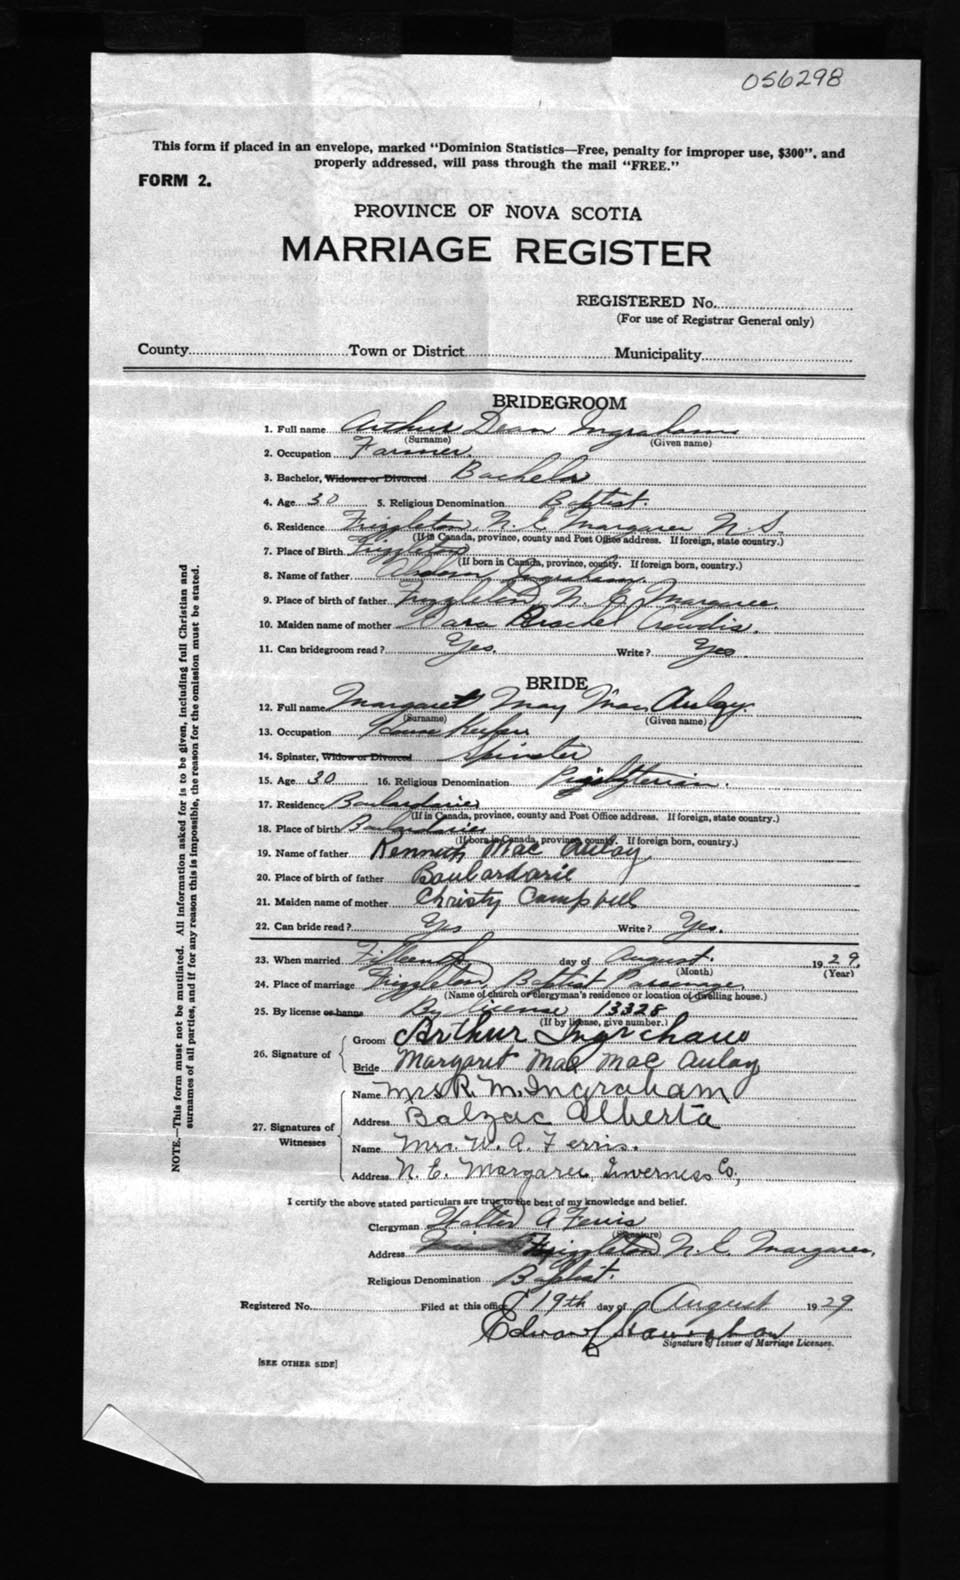 056298
This form if placed in an envelope, marked "Dominion Statistics—Free, penalty for improper use, $300", and
properly addressed, will pass through the mail "FREE."
FORM 2.
PROVINCE OF NOVA SCOTIA
MARRIAGE REGISTER
REGISTERED No.
(For use of Registrar General only)
County Town or District Municipality
BRIDEGROOM
1. Full name Arthur Dean Ingraham
(Surname) (Given name)
2. Occupation Farmer.
3. Bachelor, Widower or Divorced Bachelor
4. Age 30 5. Religious Denomination Baptist.
6. Residence Frizzleton, N. E. Margaree N. S.
(If in Canada, province, county and Post Office address. If foreign, state country.)
7. Place of Birth Frizzleton
(If born in Canada, province, county. If foreign born, country.)
8. Name of father Ingraham.
9. Place of birth of father Frizzleton, N. E. Margaree.
10. Maiden name of mother Crowdis.
11. Can bridegroom read? Yes. Write? Yes.
BRIDE
12. Full name Margaret May Mac Aulay.
(Surname) (Given name)
13. Occupation House Keeper
14. Spinster, Widow or Divorced Spinster
15. Age 30 16. Religious Denomination Presbyterian.
17. Residence Boulardarie
(If in Canada, province, county and Post Office address. If foreign, state country.)
18. Place of birth Boulardarie
(If born in Canada, province, county. If foreign born, country.)
19. Name of father Kenneth Mac Aulay
20. Place of birth of father Boulardarie
21. Maiden name of mother Christy Campbell
22. Can bride read? Yes Write? Yes.
23. When married Fifteenth day of August. 1929.
(Month) (Year)
24. Place of marriage Frizzleton, Baptist Parsonage.
(Name of church or clergyman's residence or location of dwelling house.)
25. By license or banns By license 13328
(If by license, give number.)
26. Signature of Groom Arthur Ingraham
Bride Margaret Mae Mac Aulay
27. Signatures of Witnesses Name Mrs R. M. Ingraham
Address Balzac Alberta
Name Mrs. W. A. Ferris.
Address N. E. Margaree, Inverness Co,
I certify the above stated particulars are true to the best of my knowledge and belief.
Clergyman Walter A Ferris
(Signature)
Address Frizzleton N. E. Margaree.
Religious Denomination Baptist.
Registered No. Filed at this office 19th day of August 1929
Edward
Signature of Issuer of Marriage Licenses.
[SEE OTHER SIDE]
NOTE.—This form must not be mutilated. All information asked for is to be given, including full Christian and
surnames of all parties, and if for any reason this is impossible, the reason for the omission must be stated.